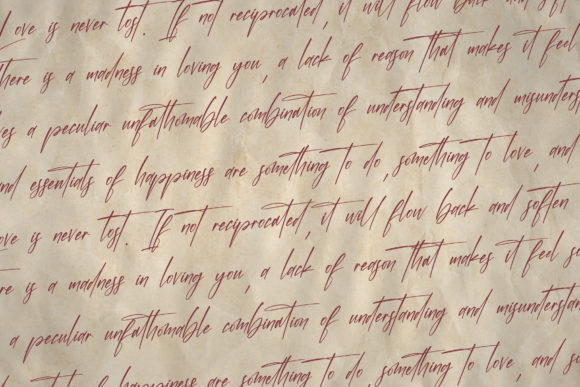 Love is never lost. If not reciprocated, it will flow back and soft
There is a madness in loving you, a lack of reason that makes it feel
es a peculiar unfathomable combination of understanding and misunders
nd essentials of happiness are something to do, something to love, and
ove is never lost. If not reciprocated, it will flow back and soften
re is a madness in loving you, a lack of reason that makes it feel so
a peculiar unfathomable combination of understanding and misunderstan
essentials of happiness are something to do, something to love, and so